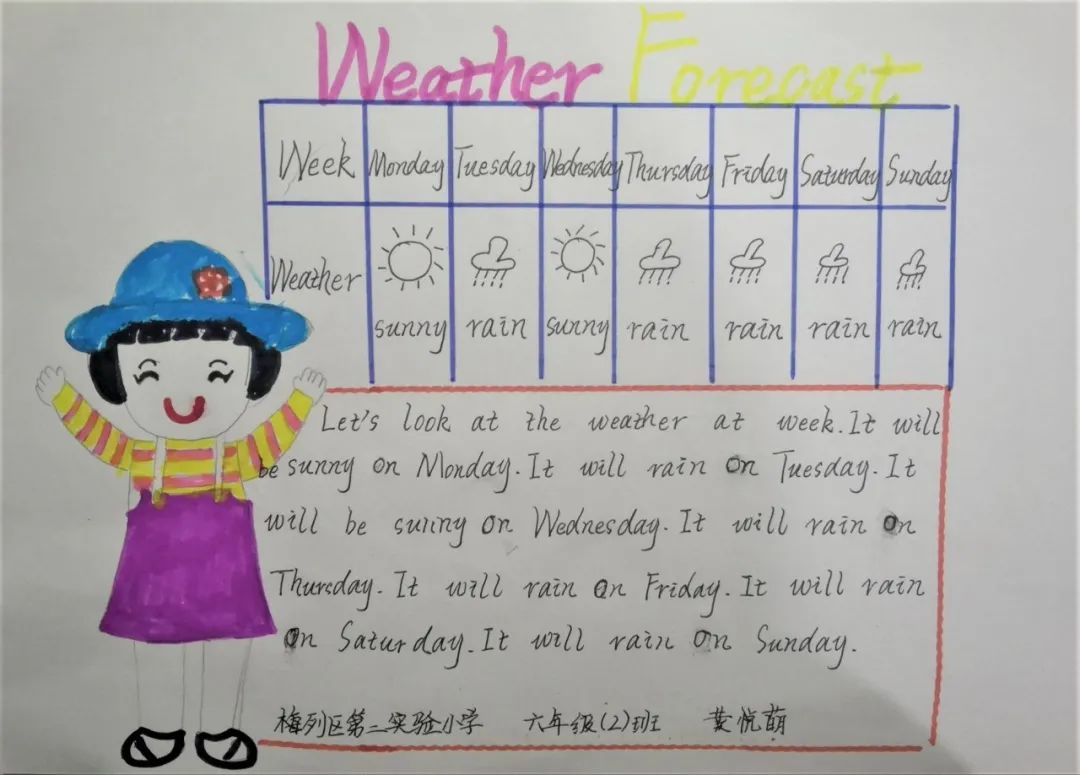 Weather Forecast
Week Monday Tuesday Wednesday Thursday Friday Saturday Sunday
Weather
sunny rain sunny rain rain rain rain
Let's look at the weather at week. It will
be sunny on Monday. It will rain on Tuesday. It
will be sunny on Wednesday. It will rain on
Thursday. It will rain on Friday. It will rain
on Saturday. It will rain on Sunday.
梅列区第二实验小学 六年级(2)班 黄悦萌